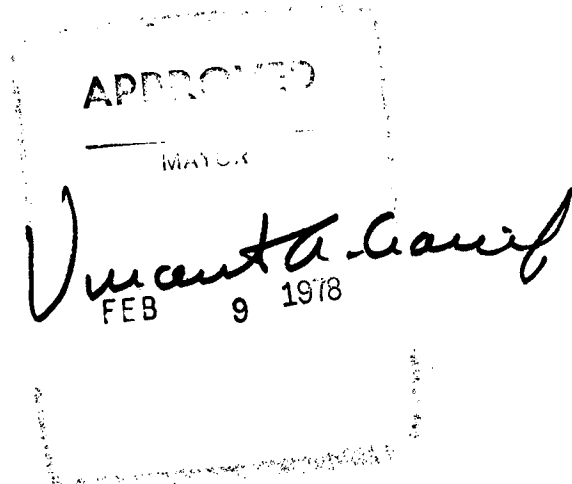 APPROVED
MAYOR
Vincent A. Cianci
FEB 9 1978